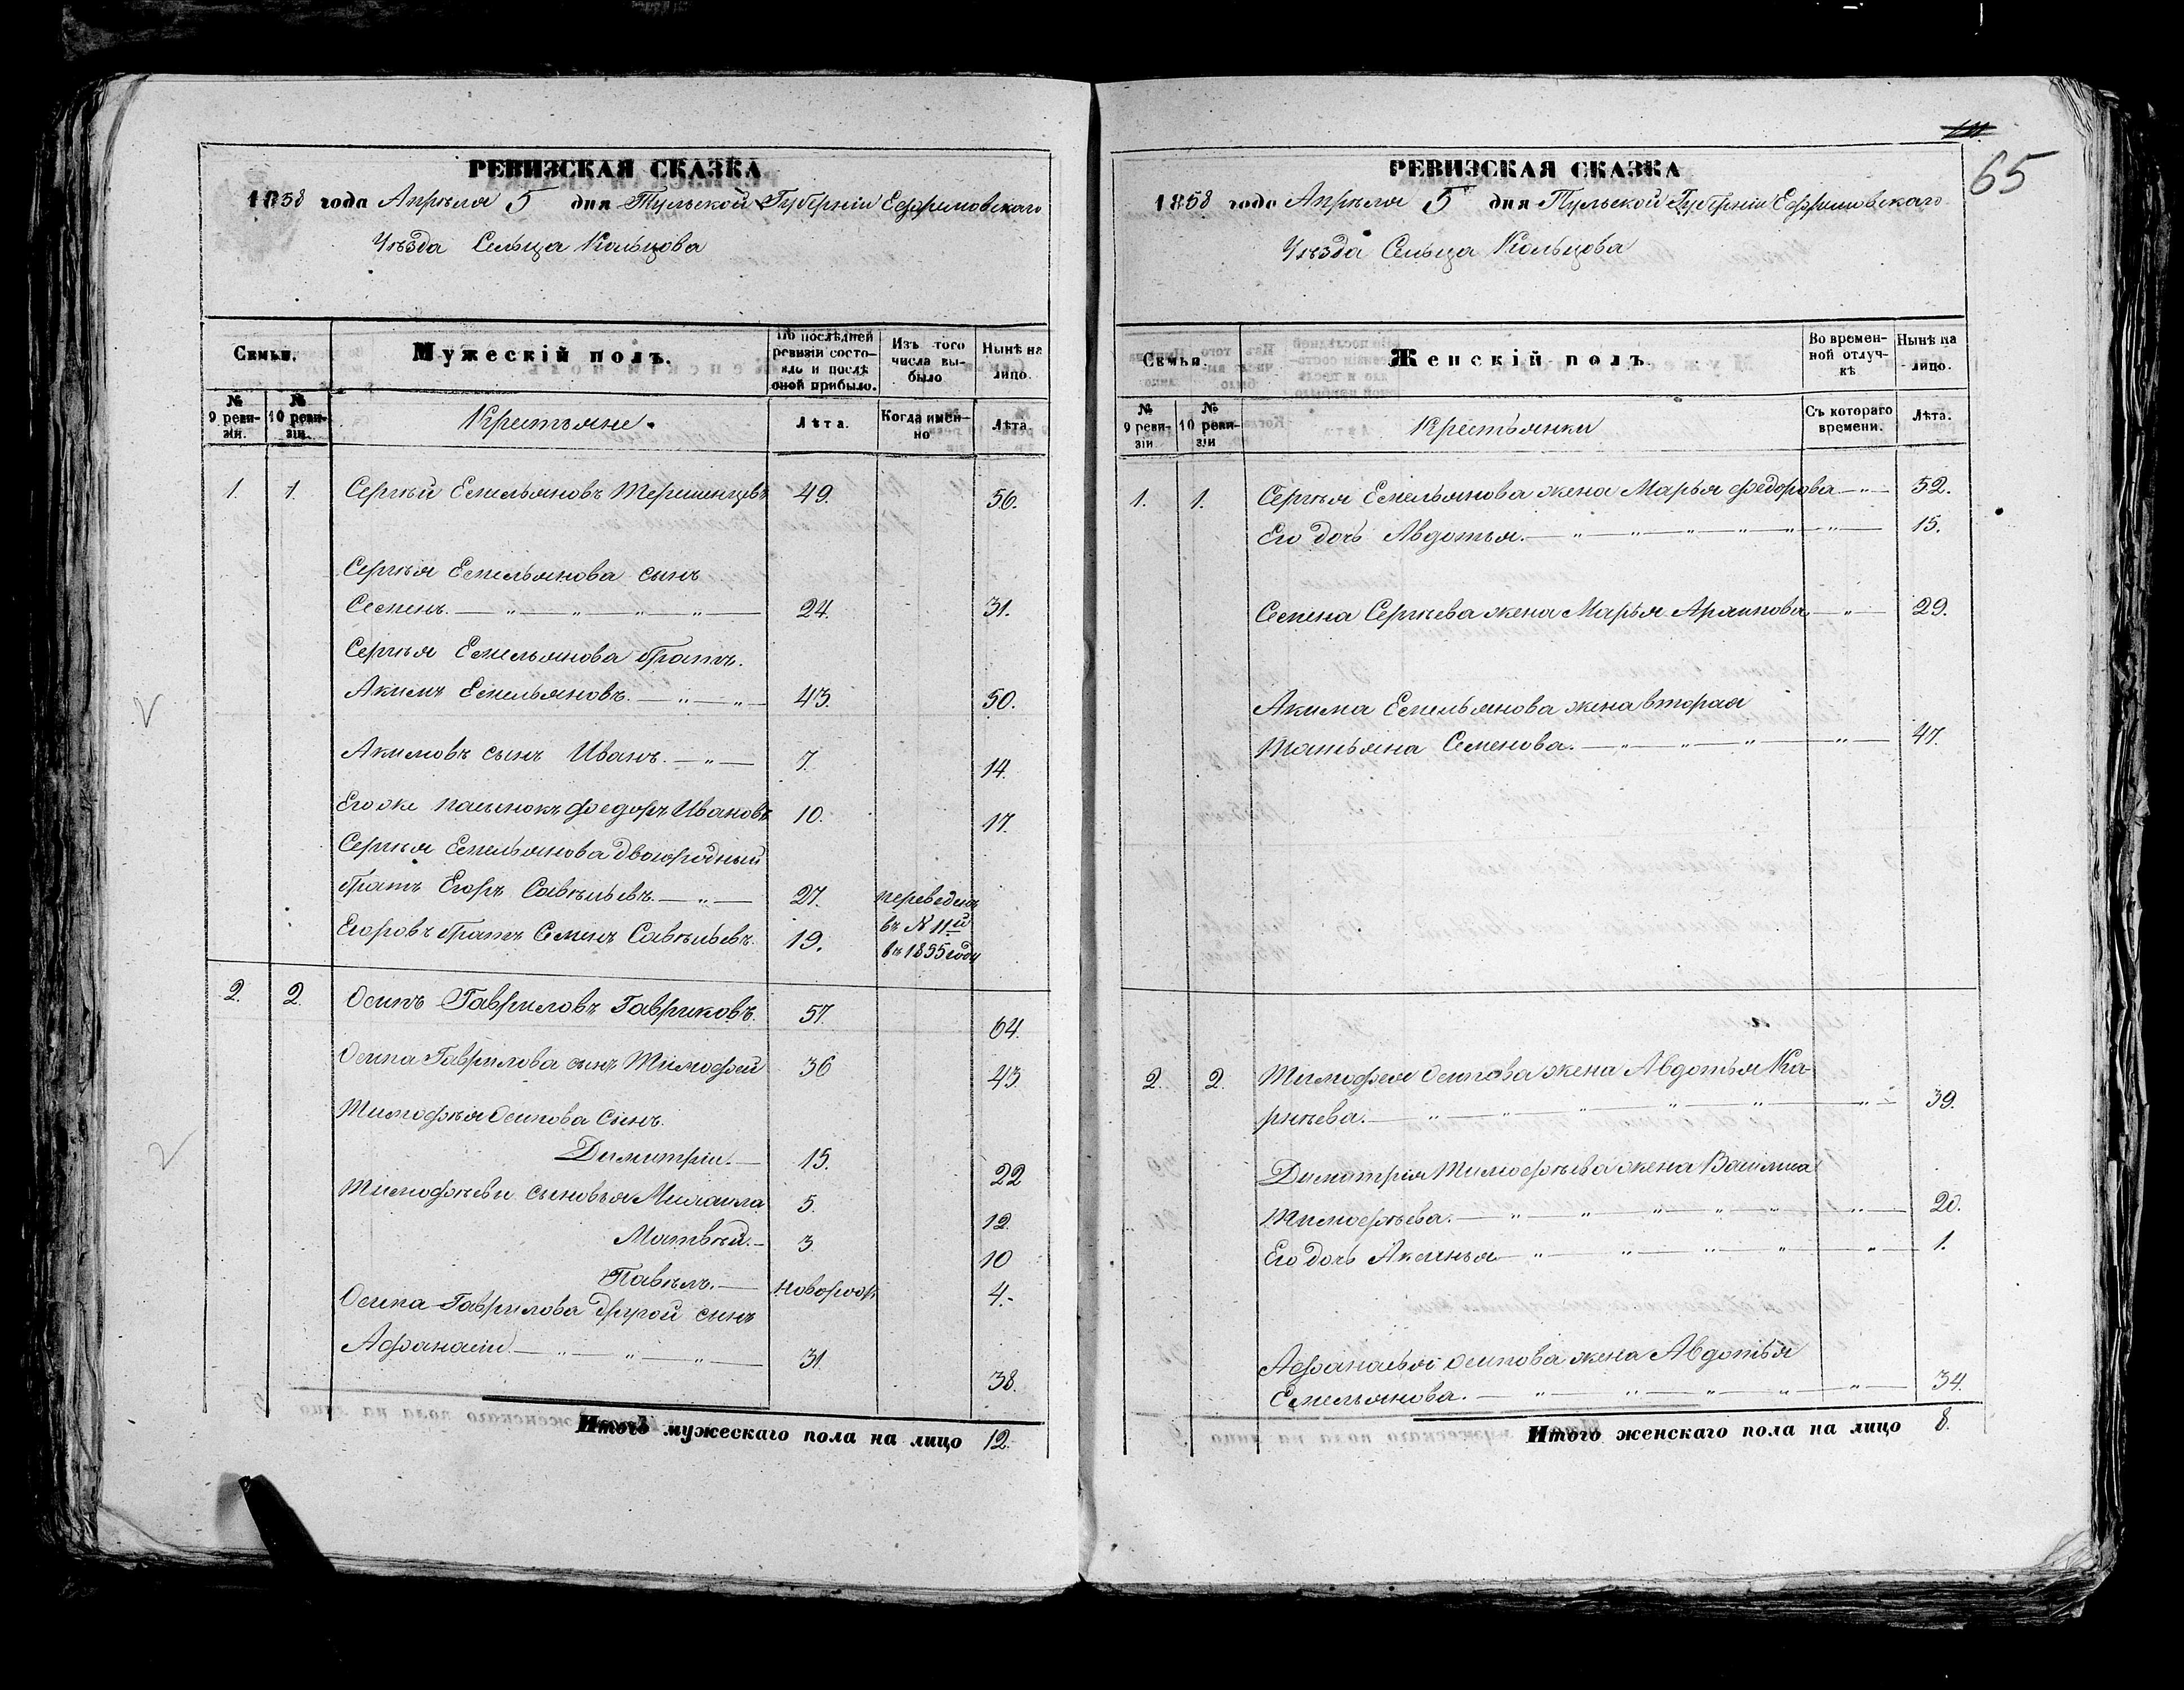 РЕВИЗСКАЯ СКАЗКА
1858 года Апрѣля 5 дня Тульской Губерніи Ефремовскаго
Уѣзда Сельца Кольцова
Семьи.
Мужескій полъ.
По послѣдней ревизіи состояло и послѣ оной прибыло.
Изъ того числа выбыло
Нынѣ на лицо.
№ 9 ревизіи.
№ 10 ревизіи.
Крестьяне.
Лѣта.
Когда именно
Лѣта.
1. 1. Сергѣй Емельяновъ 49. 56.
Сергѣя Емельянова сынъ
Семенъ. — " — " — " — " — 24. 31.
Сергѣя Емельянова братъ.
Акимъ Емельяновъ. — " — " — 43. 50.
Акимовъ сынъ Иванъ. — " — 7. 14.
Его же пасынокъ Федоръ Ивановъ 10. 17.
Сергѣя Емельянова двоюродный
братъ Егоръ Савельевъ. — " — 27. переведены
Егоровъ братъ Семенъ Савельевъ. 19. въ № 11й
въ 1855 году
2. 2. Осипъ Гавриловъ Гавриковъ. 57. 64.
Осипа Гаврилова сынъ Тимофей 36 43
Тимофѣя Осипова сынъ.
Димитріи. — 15. 22
Тимофѣевы сыновья Михаила 5. 12
Матвѣй. — 3. 10
Павелъ. — новорож 4.-
Осипа Гаврилова другой сынъ
Афанасіи. — " — " — " — 31. 38.
Итого мужескаго пола на лицо 12.
65
РЕВИЗСКАЯ СКАЗКА
1858 года Апрѣля 5 дня Тульской Губерніи Ефремовскаго
Уѣзда Сельца Кольцова
Семьи.
Женскій полъ.
Во временной отлучкѣ
Нынѣ на лицо.
№ 9 ревизіи
№ 10 ревизіи
Крестьянки
Съ котораго времени.
Лѣта.
1. 1. Сергѣя Емельянова жена Марья Федорова — " — 52.
Его дочь Авдотья. — " — " — " — " — " — 15.
Семена Сергѣева жена Марья — " — 29.
Акима Емельянова жена вторая
Татьяна Семенова. — " — " — " — " — 47.
2. 2. Тимофея Осипова жена Авдотья Ка-
рнѣева. — " — " — " — " — " — " — 39.
Димитрія Тимофѣева жена Василиса
Тимофѣева. — " — " — " — " — " — " — 20.
Его дочь Аксинья — " — " — " — " — " — 1.
Афанасья Осипова жена Авдотья
Емельянова. — " — " — " — " — " — 34.
Итого женскаго пола на лицо 8.